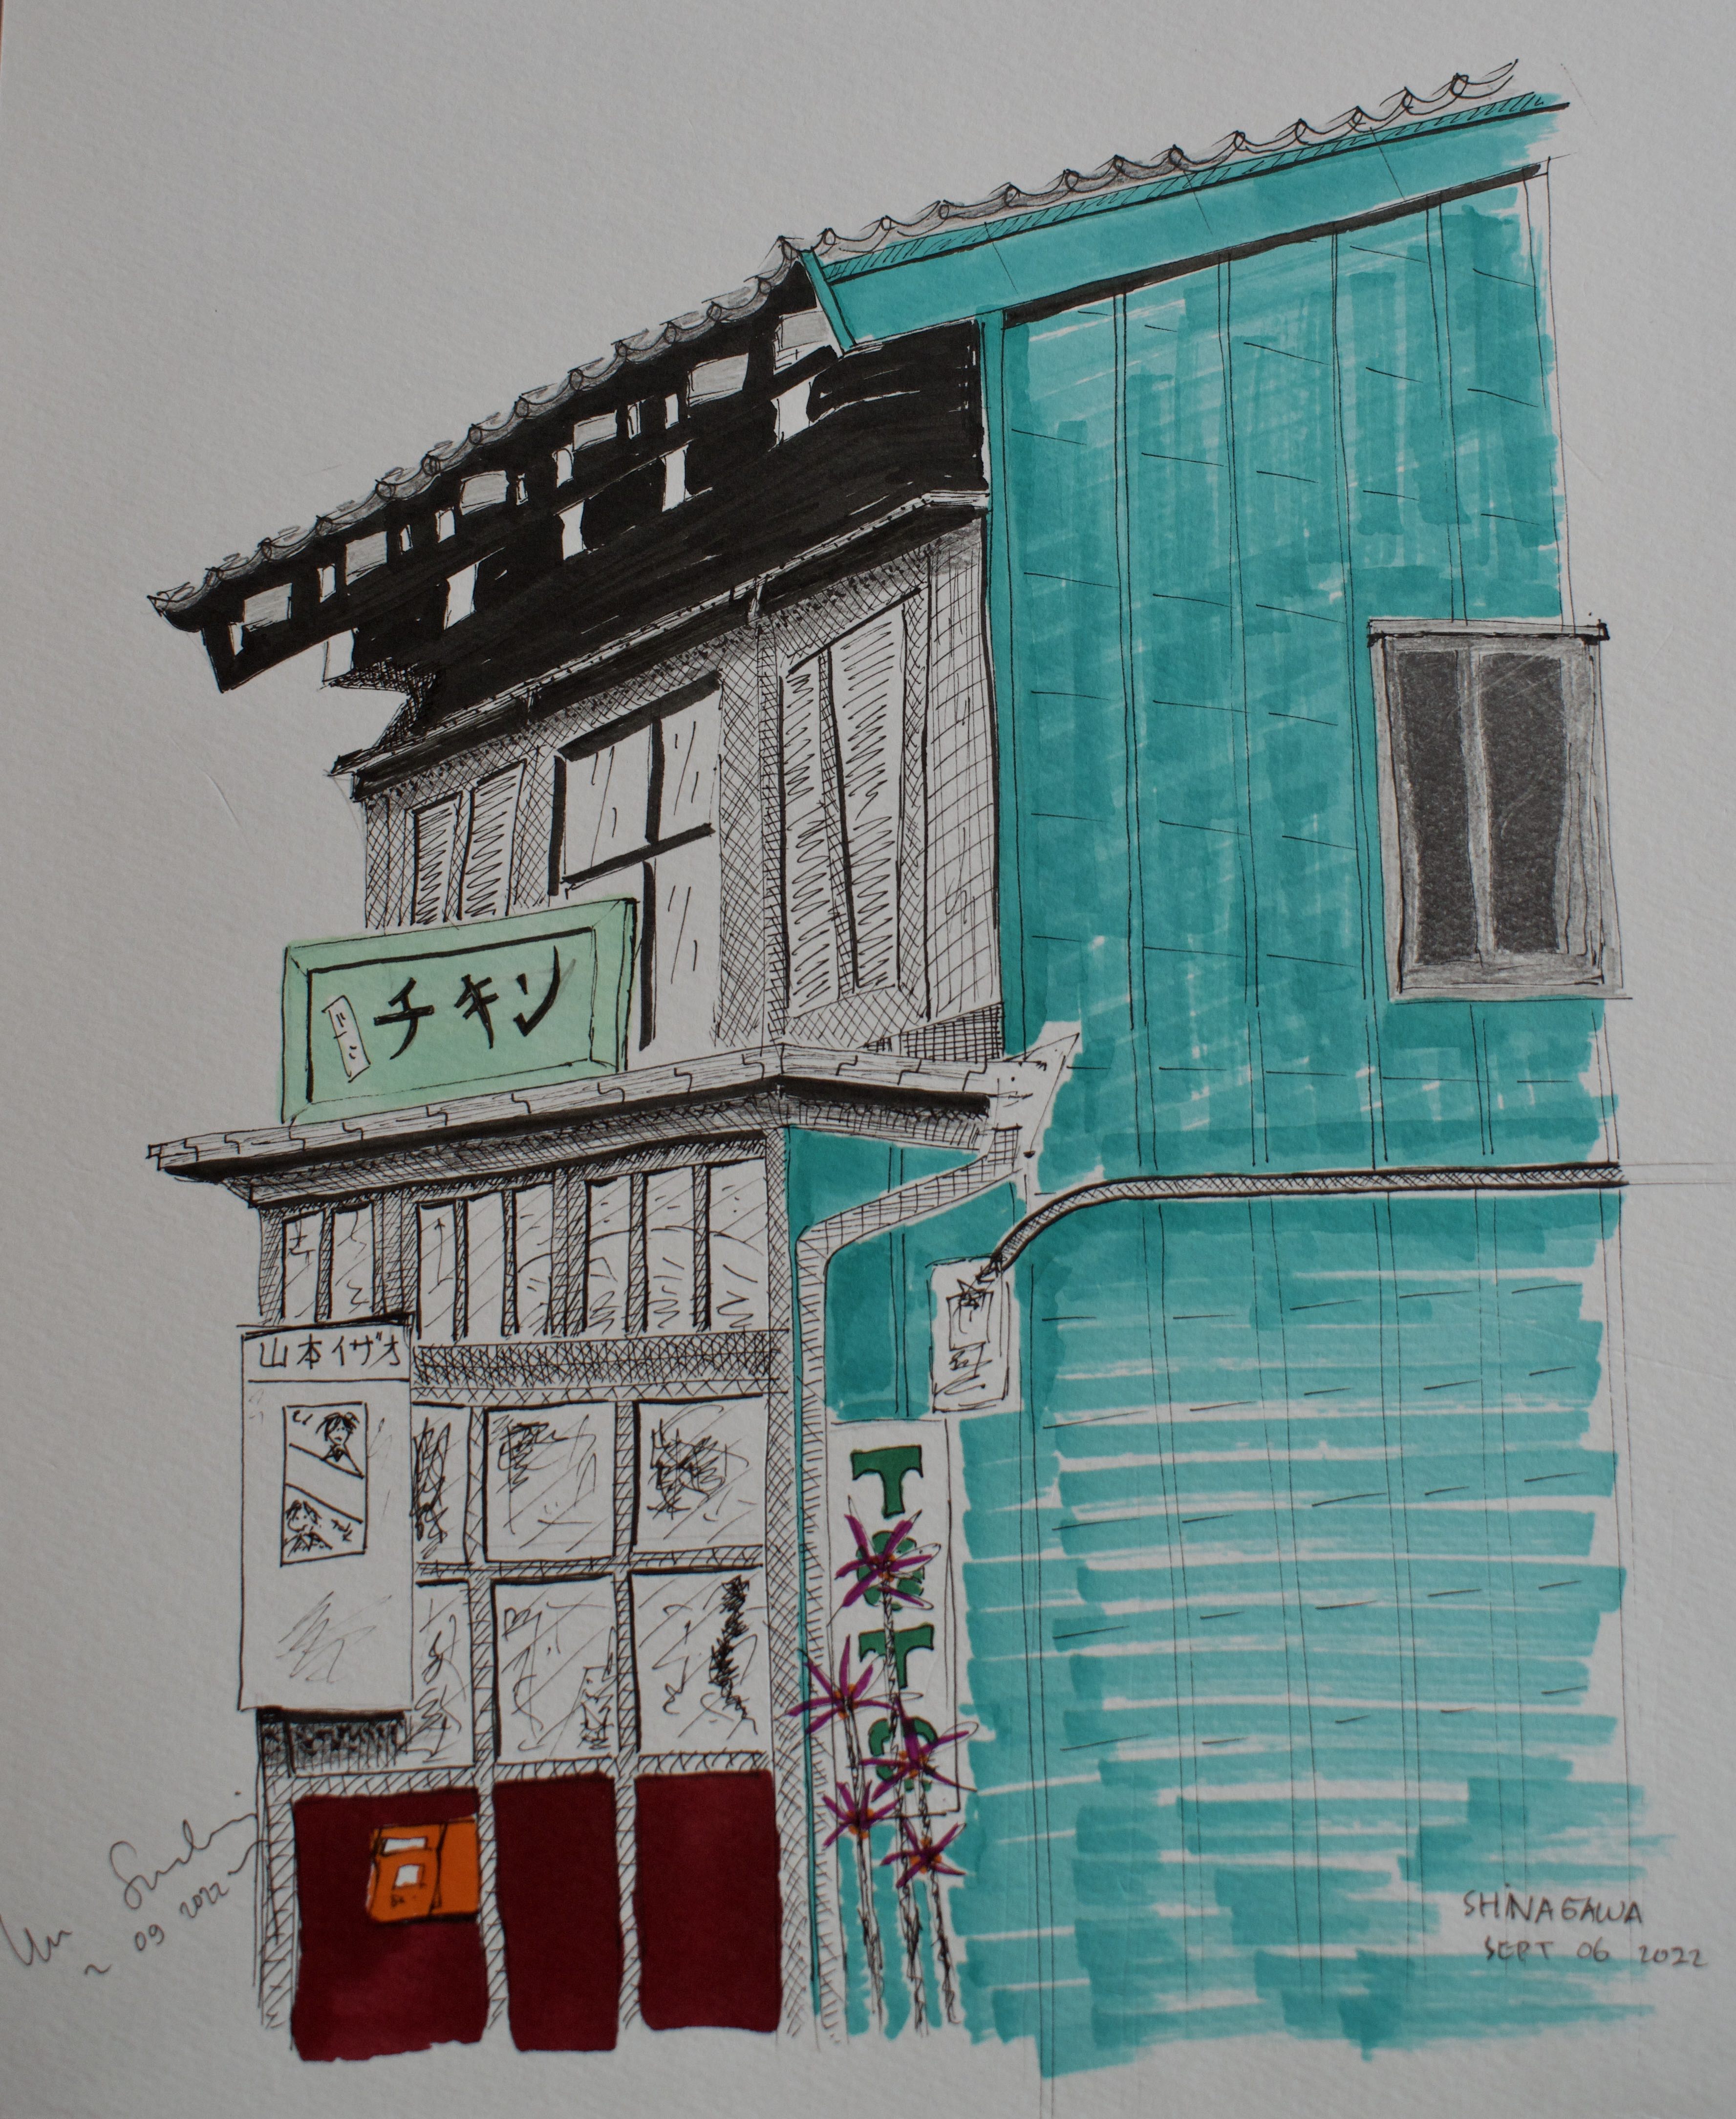 チキン
山本イザオ
TOTO
09 2022
SHINAGAWA
SEPT 06 2022